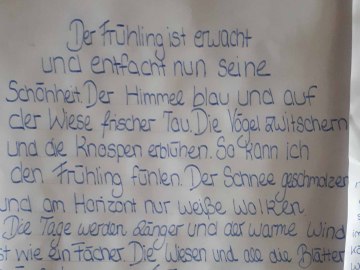 Der Frühling ist erwacht
und entfacht nun seine
Schönheit. Der Himmel blau und auf
der Wiese frischer Tau. Die Vögel zwitschern
und die Knospen erblühen. So kann ich
den Frühling fühlen. Der Schnee geschmolzen
und am Horizont nur weiße Wolken
Die Tage werden länger und der warme Wind
ist wie ein Fächer. Die Wiesen und all die Blätter